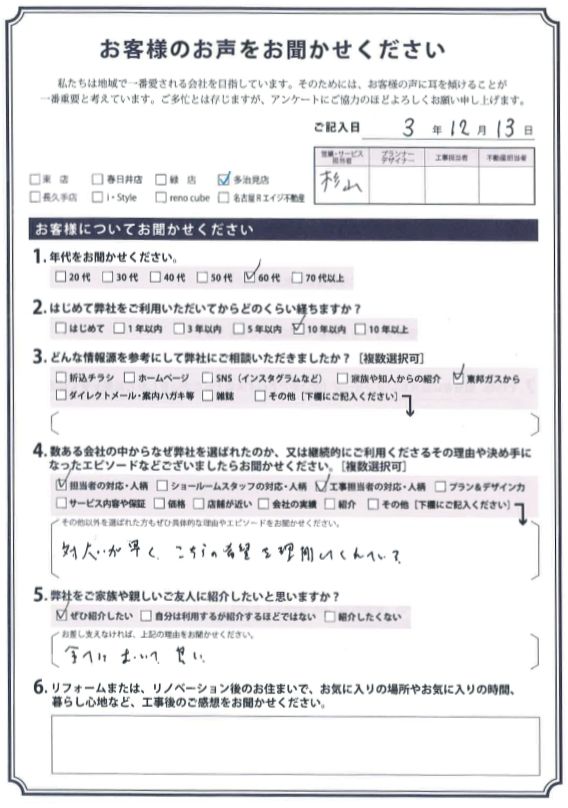 お客様のお声をお聞かせください
私たちは地域で一番愛される会社を目指しています。そのためには、お客様の声に耳を傾けることが
一番重要と考えています。ご多忙とは存じますが、アンケートにご協力のほどよろしくお願い申し上げます。
ご記入日 3 年 12 月 13 日
営業・サービス担当者 プランナーデザイナー 工事担当者 不動産担当者
杉山
□東 店 □春日井店 □緑 店 ☑多治見店
□長久手店 □i・Style □reno cube □名古屋Rエイジ不動産
お客様についてお聞かせください
1. 年代をお聞かせください。
□20代 □30代 □40代 □50代 ☑60代 □70代以上
2. はじめて弊社をご利用いただいてからどのくらい経ちますか?
□はじめて □1年以内 □3年以内 □5年以内 ☑10年以内 □10年以上
3. どんな情報源を参考にして弊社にご相談いただきましたか?[複数選択可]
□折込チラシ □ホームページ □SNS(インスタグラムなど) □家族や知人からの紹介 ☑東邦ガスから
□ダイレクトメール・案内ハガキ等 □雑誌 □その他[下欄にご記入ください]
4. 数ある会社の中からなぜ弊社を選ばれたのか、又は継続的にご利用くださるその理由や決め手に
なったエピソードなどございましたらお聞かせください。[複数選択可]
☑担当者の対応・人柄 □ショールームスタッフの対応・人柄 ☑工事担当者の対応・人柄 □プラン&デザイン力
□サービス内容や保証 □価格 □店舗が近い □会社の実績 □紹介 □その他[下欄にご記入ください]
その他以外を選ばれた方もぜひ具体的な理由やエピソードをお聞かせください。
対応が早く、こちらの希望を理解してくれている
5. 弊社をご家族や親しいご友人に紹介したいと思いますか?
☑ぜひ紹介したい □自分は利用するが紹介するほどではない □紹介したくない
お差し支えなければ、上記の理由をお聞かせください。
全てにおいて良い
6. リフォームまたは、リノベーション後のお住まいで、お気に入りの場所やお気に入りの時間、
暮らし心地など、工事後のご感想をお聞かせください。